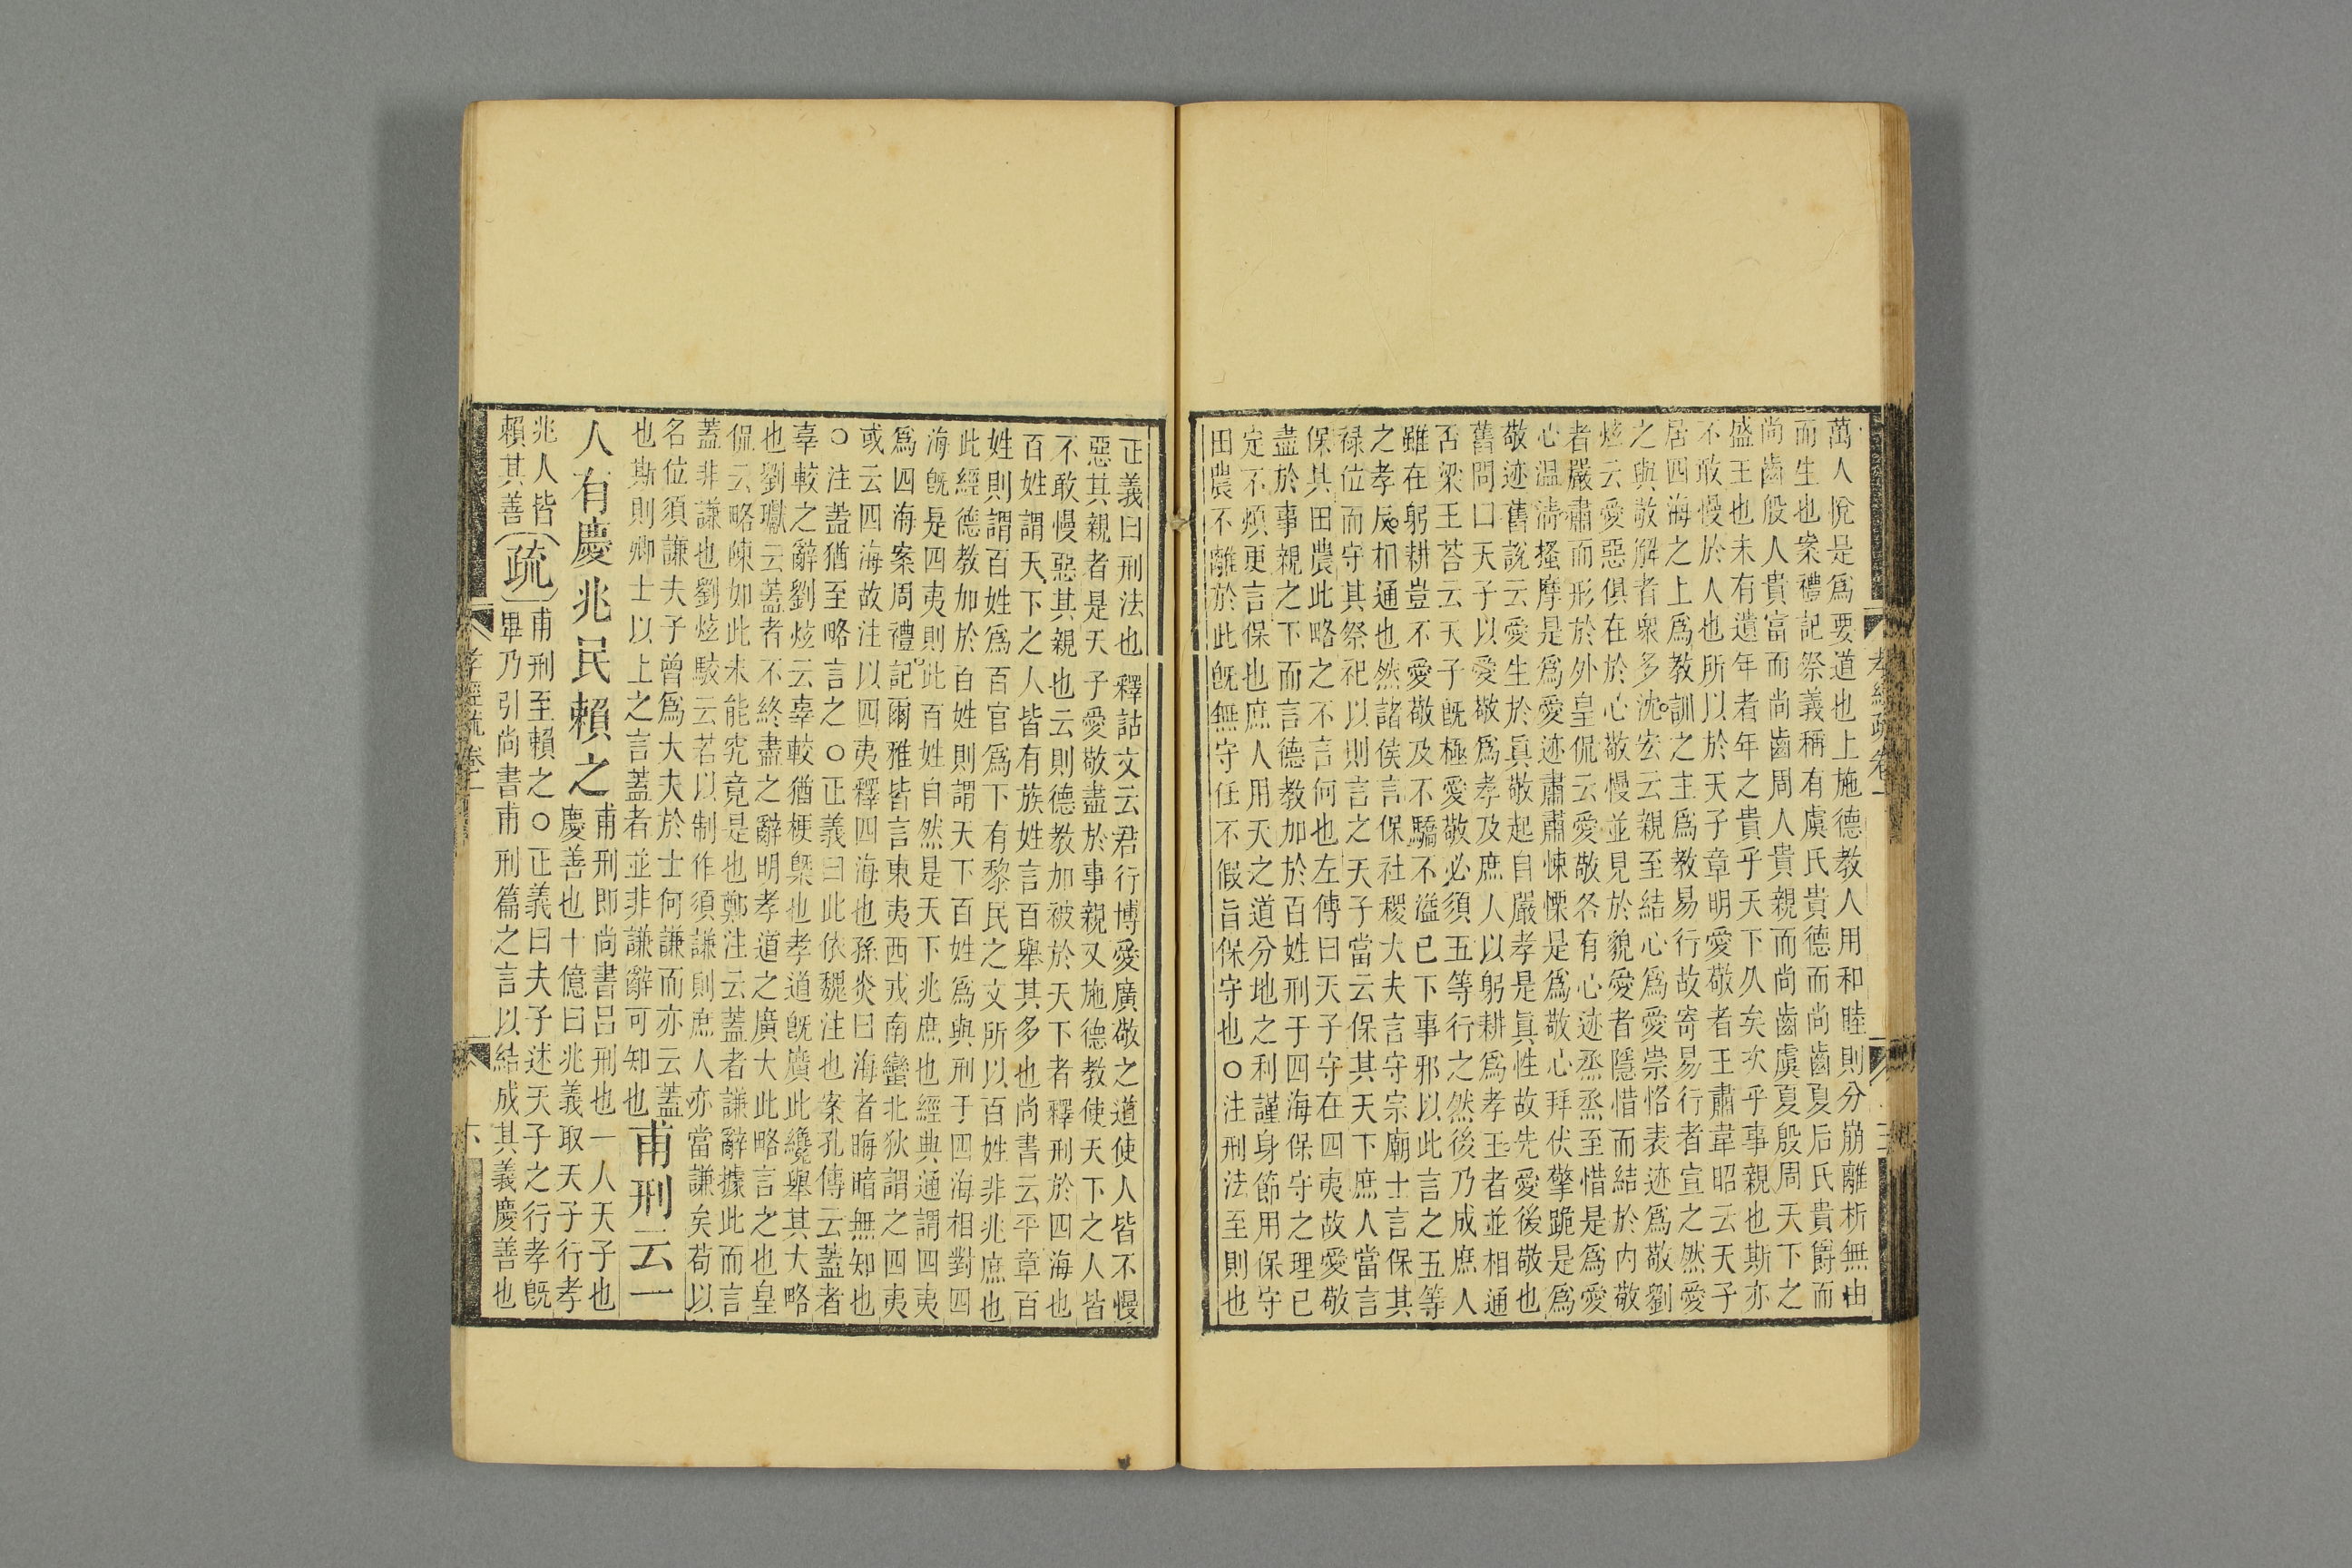 萬人悅是爲要道也上施德教人用和睦則分崩離析無由
而生也案禮記祭義稱有虞氏貴德而尚齒夏后氏貴爵而
尚齒殷人貴富而尚齒周人貴親而尚齒虞夏殷周天下之
盛王也未有遺年者年之貴乎天下久矣次乎事親也斯亦
不敢慢於人也所以於天子章明愛敬者王肅韋昭云天子
居四海之上爲教訓之主爲教易行故寄易行者宣之然愛
之與敬解者衆多沈宏云親至結心爲愛崇恪表迹爲敬劉
炫云愛惡俱在於心敬慢並見於貌愛者隱惜而結於内敬
者嚴肅而形於外皇侃云愛敬各有心迹烝烝至惜是爲愛
心温凊搔摩是爲愛迹肅肅悚慄是爲敬心拜伏擎跪是爲
敬迹舊說云愛生於眞敬起自嚴孝是眞性故先愛後敬也
舊問曰天子以愛敬爲孝及庶人以躬耕爲孝王者並相通
否梁王荅云天子旣極愛敬必須五等行之然後乃成庶人
雖在躬耕豈不愛敬及不驕不溢已下事邪以此言之五等
之孝反相通也然諸侯言保社稷大夫言守宗廟士言保其
禄位而守其祭祀以則言之天子當云保其天下庶人當言
保其田農此略之不言何也左傳曰天子守在四夷故愛敬
盡於事親之下而言德教加於百姓刑于四海保守之理已
定不煩更言保也庶人用天之道分地之利謹身節用保守
田農不離於此旣無守任不假旨保守也○注刑法至則也
孝經疏卷一
正義曰刑法也釋詁文云君行博愛廣敬之道使人皆不慢
惡其親者是天子愛敬盡於事親又施德教使天下之人皆
不敢慢惡其親也云則德教加被於天下者釋刑於四海也
百姓謂天下之人皆有族姓言百舉其多也尚書云平章百
姓則謂百姓爲百官爲下有黎民之文所以百姓非兆庶也
此經德教加於百姓則謂天下百姓爲與刑于四海相對四
海旣是四夷則此百姓自然是天下兆庶也經典通謂四夷
爲四海案周禮記爾雅皆言東夷西戎南蠻北狄謂之四夷
或云四海故注以四夷釋四海也孫炎曰海者晦暗無知也
○注蓋猶至略言之○正義曰此依魏注也案孔傳云蓋者
辜較之辭劉炫云辜較猶梗槩也孝道旣廣此纔舉其大略
也劉瓛云蓋者不終盡之辭明孝道之廣大此略言之也皇
侃云略陳如此未能究竟是也鄭注云蓋者謙辭據此而言
蓋非謙也劉炫駮云若以制作須謙則庶人亦當謙矣苟以
名位須謙夫子曾爲大夫於士何謙而亦云蓋
也斯則卿士以上之言蓋者並非謙辭可知也
甫刑云一
人有慶兆民賴之
甫刑即尚書呂刑也一人天子也
慶善也十億曰兆義取天子行孝
兆人皆
賴其善
疏
甫刑至賴之○正義曰夫子述天子之行孝旣
畢乃引尚書甫刑篇之言以結成其義慶善也
孝經疏卷一